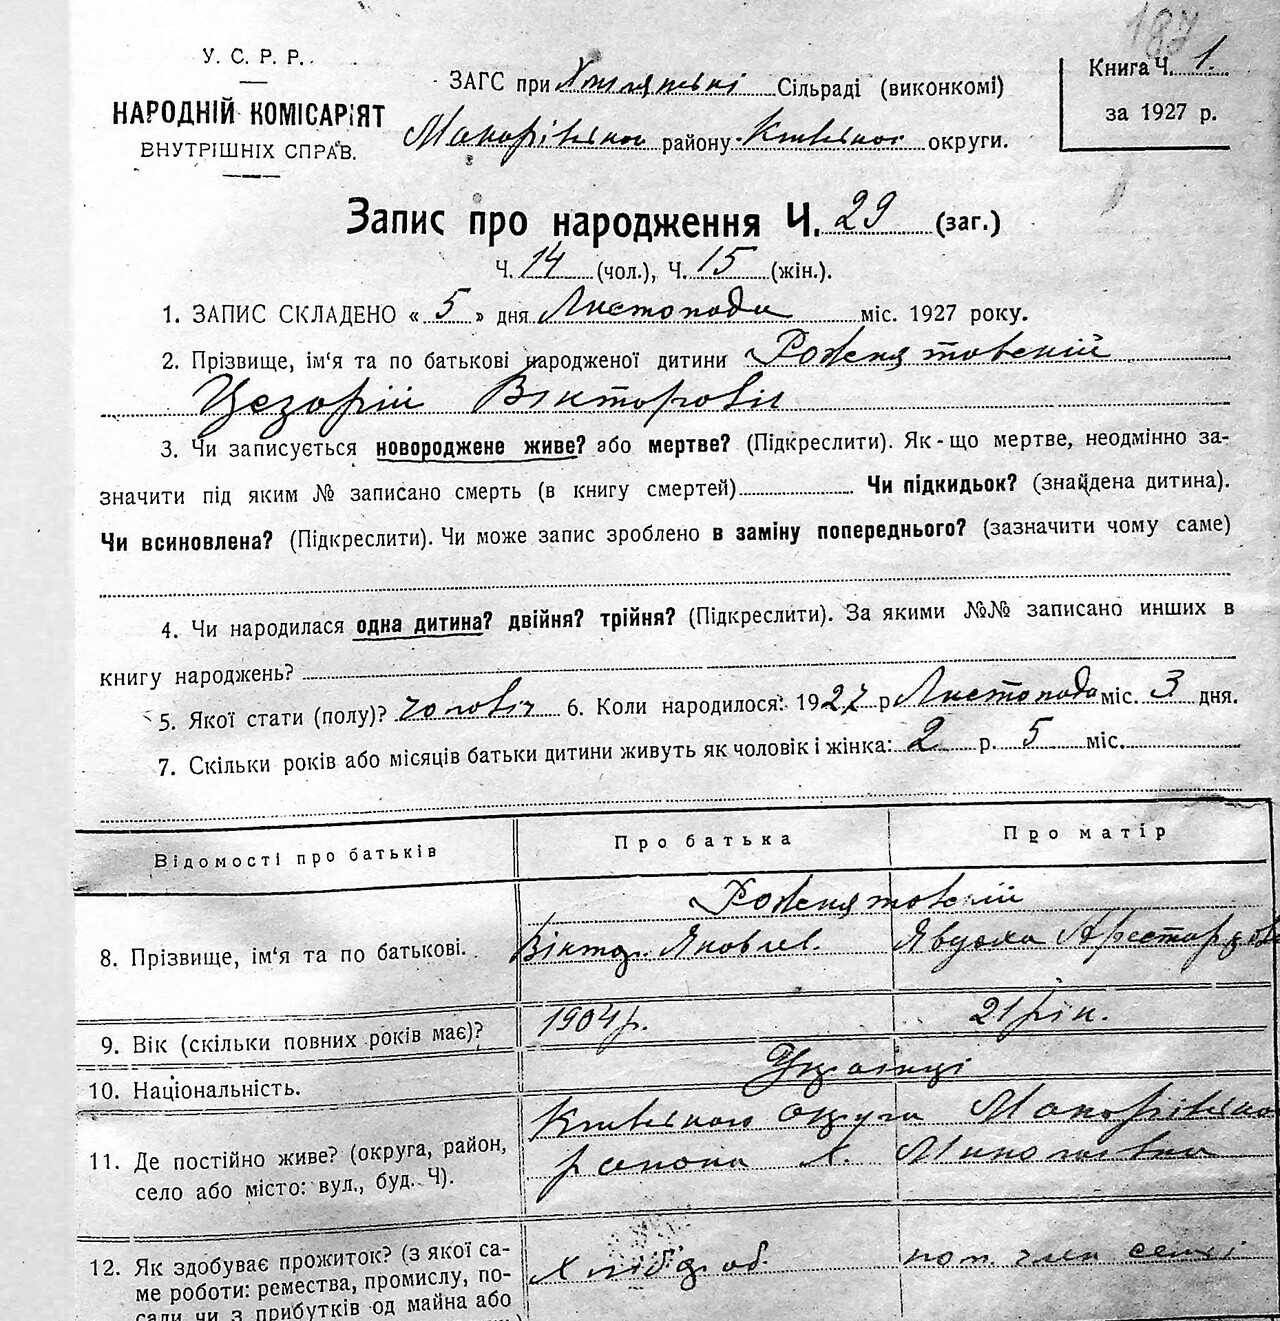 187
У. С. Р. Р.
НАРОДНІЙ КОМІСАРІЯТ
ВНУТРІШНІХ СПРАВ.
ЗАГС при Сільраді (виконкомі)
Макарівського району Київської округи.
Книга Ч. 1.
за 1927 р.
Запис про народження Ч. 29 (заг.)
Ч. 14 (чол.), Ч. 15 (жін.).
1. ЗАПИС СКЛАДЕНО « 5 » дня Листопада міс. 1927 року.
2. Прізвище, ім'я та по батькові народженої дитини
Цезорій Вікторович
3. Чи записується новороджене живе? або мертве? (Підкреслити). Як-що мертве, неодмінно за-
значити під яким № записано смерть (в книгу смертей) Чи підкидьок? (знайдена дитина).
Чи всиновлена? (Підкреслити). Чи може запис зроблено в заміну попереднього? (зазначити чому саме)
4. Чи народилася одна дитина? двійня? трійня? (Підкреслити). За якими №№ записано инших в
книгу народжень?
5. Якої стати (полу)? чоловіч 6. Коли народилося: 1927 р Листопада міс. 3 дня.
7. Скільки років або місяців батьки дитини живуть як чоловік і жінка: 2 р. 5 міс.
Відомості про батьків
Про батька
Про матір
8. Прізвище, ім'я та по батькові.
Віктор Яковлев.
Явдоха
9. Вік (скільки повних років має)?
1904 р.
21 рік.
10. Національність.
Українці
11. Де постійно живе? (округа, район,
село або місто: вул., буд. Ч).
Київського округа Макарівського
района х.
12. Як здобуває прожиток? (з якої са-
ме роботи: ремества, промислу, по-
сади чи з прибутків од майна або
Хлібороб.
член семьї